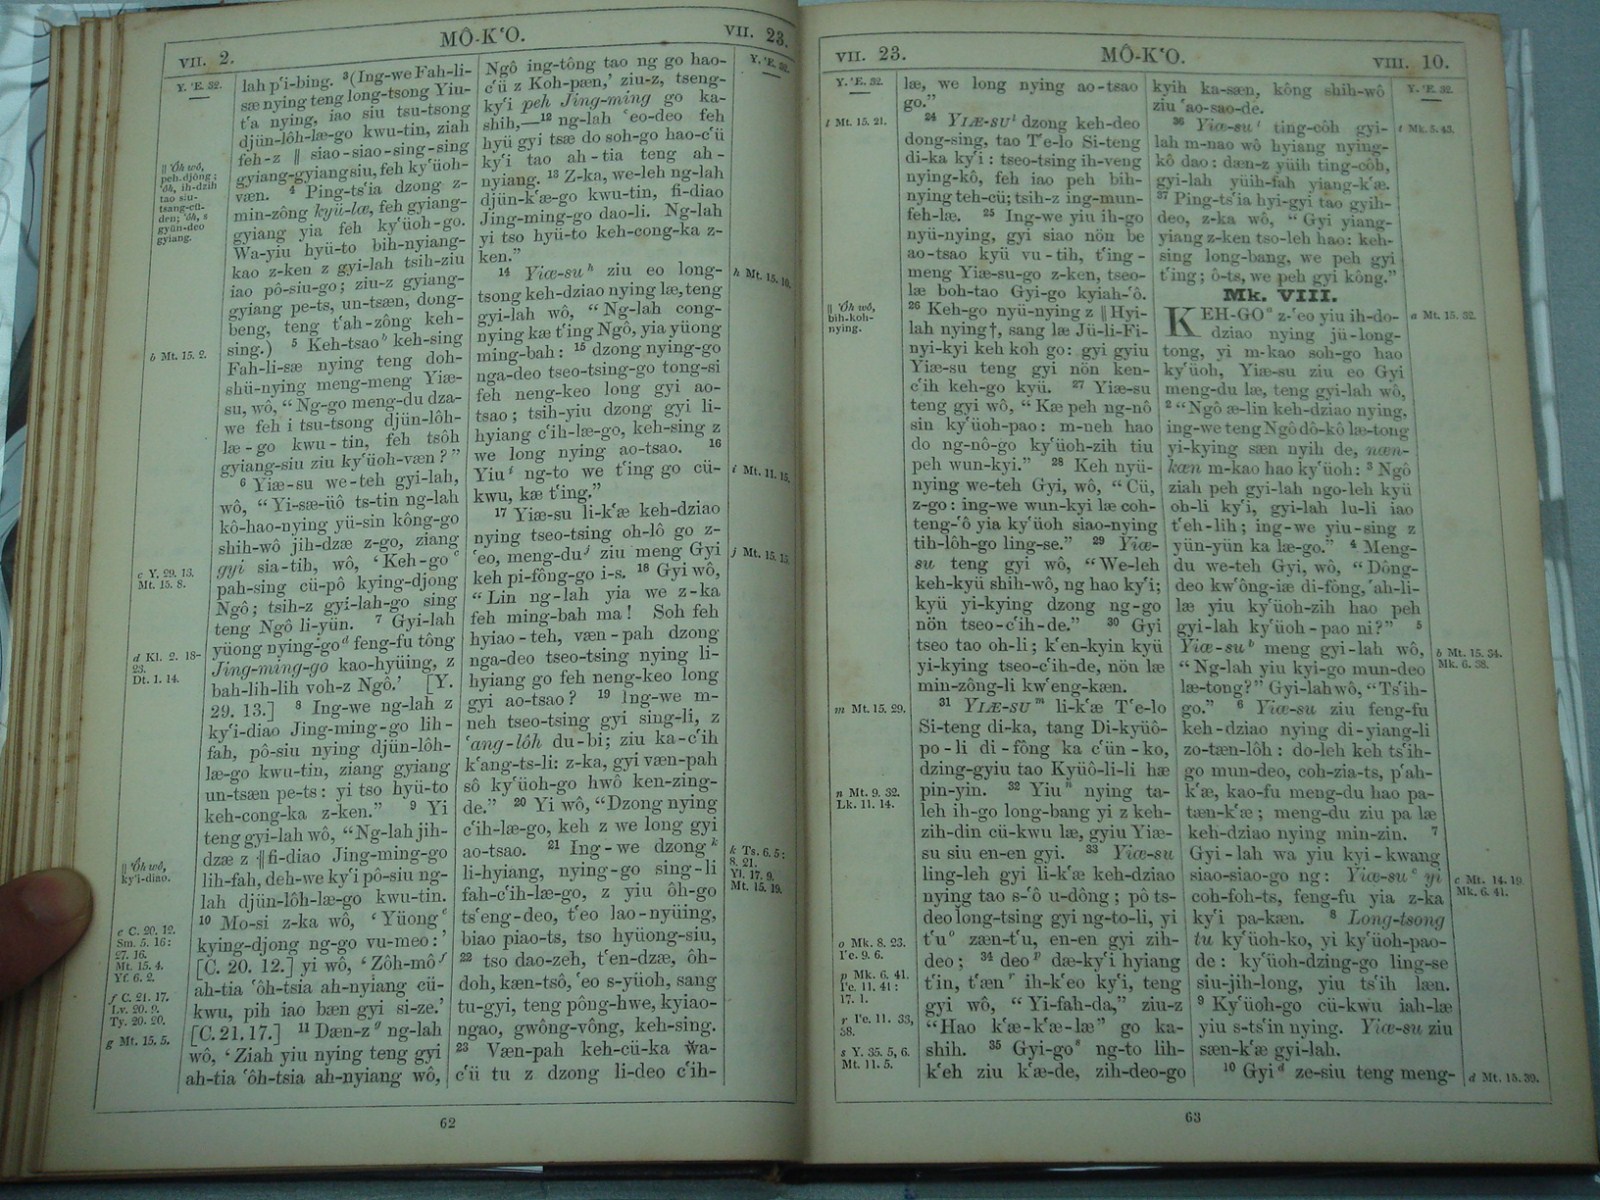 VII. 2. MÔ-KʻO. VII. 23.
Y. ʻE. 32.
lah pʻi-bing. ³(Ing-we Fah-li-
sæ nying teng long-tsong Yiu-
tʻa nying, iao siu tsu-tsong
djün-lôh-læ-go kwu-tin, ziah
feh-z ‖ siao-siao-sing-sing
gyiang-gyiangsiu, feh kyʻüoh-
væn. ⁴ Ping-tsʻia dzong z-
min-zông kyü-læ, feh gyiang-
gyiang yia feh kyʻüoh-go.
Wa-yiu hyü-to bih-nyiang-
kao z-ken z gyi-lah tsih-ziu
iao pô-siu-go; ziu-z gyiang-
gyiang pe-ts, un-tsæn, dong-
beng, teng tʻah-zông keh-
sing.) ⁵ Keh-tsaoᵇ keh-sing
Fah-li-sæ nying teng doh-
shü-nying meng-meng Yiæ-
su, wô, “Ng-go meng-du dza-
we feh i tsu-tsong djün-lôh-
læ-go kwu-tin, feh tsôh
gyiang-siu ziu kyʻüoh-væn?”
⁶ Yiæ-su we-teh gyi-lah,
wô, “Yi-sæ-üô ts-tin ng-lah
kô-hao-nying yü-sin kông-go
shih-wô jih-dzæ z-go, ziang
gyi sia-tih, wô, ‘Keh-goᶜ
pah-sing cü-pô kying-djong
Ngô; tsih-z gyi-lah-go sing
teng Ngô li-yün. ⁷ Gyi-lah
yüong nying-goᵈ feng-fu tông
Jing-ming-go kao-hyüing, z
bah-lih-lih voh-z Ngô.’ [Y.
29. 13.] ⁸ Ing-we ng-lah z
kyʻi-diao Jing-ming-go lih-
fah, pô-siu nying djün-lôh-
læ-go kwu-tin, ziang gyiang
un-tsæn pe-ts: yi tso hyü-to
keh-cong-ka z-ken.” ⁹ Yi
teng gyi-lah wô, “Ng-lah jih-
dzæ z ‖fi-diao Jing-ming-go
lih-fah, deh-we kyʻi pô-siu ng-
lah djün-lôh-læ-go kwu-tin.
¹⁰ Mo-si z-ka wô, ‘Yüongᵉ
kying-djong ng-go vu-meo:’
[C. 20. 12.] yi wô, ‘Zôh-môᶠ
ah-tia ʻôh-tsia ah-nyiang cü-
kwu, pih iao bæn gyi si-ze.’
[C. 21. 17.] ¹¹ Dæn-zᵍ ng-lah
wô, ‘Ziah yiu nying teng gyi
ah-tia ʻôh-tsia ah-nyiang wô,
‖ ʻÔh wô,
peh djông;
ʻôh, ih-dzih
tao siu-
tsang-cü-
den; ʻôh, s
gyün-deo
gyiang.
b Mt. 15. 2.
c Y. 29. 13.
Mt. 15. 8.
d Kl. 2. 18-
23.
Dt. 1. 14.
‖ ʻÔh wô,
kyʻi-diao.
e C. 20. 12.
Sm. 5. 16:
27. 16.
Mt. 15. 4.
Yf. 6. 2.
f C. 21. 17.
Lv. 20. 9.
Ty. 20. 20.
g Mt. 15. 5.
Ngô ing-tông tao ng go hao-
cʻü z Koh-pæn,’ ziu-z, tseng-
kyʻi peh Jing-ming go ka-
shih,—¹² ng-lah ʻeo-deo feh
hyü gyi tsæ do soh-go hao-cʻü
kyʻi tao ah-tia teng ah-
nyiang. ¹³ Z-ka, we-leh ng-lah
djün-kʻæ-go kwu-tin, fi-diao
Jing-ming-go dao-li. Ng-lah
yi tso hyü-to keh-cong-ka z-
ken.”
¹⁴ Yiæ-suʰ ziu eo long-
tsong keh-dziao nying læ, teng
gyi-lah wô, “Ng-lah cong-
nying kæ tʻing Ngô, yia yüong
ming-bah: ¹⁵ dzong nying-go
nga-deo tseo-tsing-go tong-si
feh neng-keo long gyi ao-
tsao; tsih-yiu dzong gyi li-
hyiang cʻih-læ-go, keh-sing z
we long nying ao-tsao. ¹⁶
Yiuⁱ ng-to we tʻing go cü-
kwu, kæ tʻing.”
¹⁷ Yiæ-su li-kʻæ keh-dziao
nying tseo-tsing oh-lô go z-
ʻeo, meng-duʲ ziu meng Gyi
keh pi-fông-go i-s. ¹⁸ Gyi wô,
“Lin ng-lah yia we z-ka
feh ming-bah ma! Soh feh
hyiao-teh, væn-pah dzong
nga-deo tseo-tsing nying li-
hyiang go feh neng-keo long
gyi ao-tsao? ¹⁹ Ing-we m-
neh tseo-tsing gyi sing-li, z
ʻang-lôh du-bi; ziu ka-cʻih
kʻang-ts-li: z-ka, gyi væn-pah
sô kyʻüoh-go hwô ken-zing-
de.” ²⁰ Yi wô, “Dzong nying
cʻih-læ-go, keh z we long gyi
ao-tsao. ²¹ Ing-we dzongᵏ
li-hyiang, nying-go sing-li
fah-cʻih-læ-go, z yiu ôh-go
tsʻeng-deo, tʻeo lao-nyüing,
biao piao-ts, tso hyüong-siu,
²² tso dao-zeh, tʻen-dzæ, ôh-
doh, kæn-tsô, ʻeo s-yüoh, sang
tu-gyi, teng pông-hwe, kyiao-
ngao, gwông-vông, keh-sing.
²³ Væn-pah keh-cü-ka wa-
cʻü tu z dzong li-deo cʻih-
Y. ʻE. 32.
h Mt. 15. 10.
i Mt. 11. 15.
j Mt. 15. 15.
k Ts. 6. 5:
8. 21.
Yl. 17. 9.
Mt. 15. 19.
62
VII. 23. MÔ-KʻO. VIII. 10.
Y. ʻE. 32.
læ, we long nying ao-tsao
go.”
²⁴ YIÆ-SUˡ dzong keh-deo
dong-sing, tao Tʻe-lo Si-teng
di-ka kyʻi: tseo-tsing ih-veng
nying-kô, feh iao peh bih-
nying teh-cü; tsih-z ing-mun-
feh-læ. ²⁵ Ing-we yiu ih-go
nyü-nying, gyi siao nön be
ao-tsao kyü vu-tih, tʻing-
meng Yiæ-su-go z-ken, tseo-
læ boh-tao Gyi-go kyiah-ʻô.
²⁶ Keh-go nyü-nying z ‖ Hyi-
lah nying†, sang læ Jü-li-Fi-
nyi-kyi keh koh go: gyi gyiu
Yiæ-su teng gyi nön ken-
cʻih keh-go kyü. ²⁷ Yiæ-su
teng gyi wô, “Kæ peh ng-nô
sin kyʻüoh-pao: m-neh hao
do ng-nô-go kyʻüoh-zih tiu
peh wun-kyi.” ²⁸ Keh nyü-
nying we-teh Gyi, wô, “Cü,
z-go: ing-we wun-kyi læ coh-
teng-ʻô yia kyʻüoh siao-nying
tih-lôh-go ling-se.” ²⁹ Yiæ-
su teng gyi wô, “We-leh
keh-kyü shih-wô, ng hao kyʻi;
kyü yi-kying dzong ng-go
nön tseo-cʻih-de.” ³⁰ Gyi
tseo tao oh-li; kʻen-kyin kyü
yi-kying tseo-cʻih-de, nön læ
min-zông-li kwʻeng-kæn.
³¹ YIÆ-SUᵐ li-kʻæ Tʻe-lo
Si-teng di-ka, tang Di-kyüô-
po-li di-fông ka cʻün-ko,
dzing-gyiu tao Kyüô-li-li hæ
pin-yin. ³² Yiuⁿ nying ta-
leh ih-go long-bang yi z keh-
zih-din cü-kwu læ, gyiu Yiæ-
su siu en-en gyi. ³³ Yiæ-su
ling-leh gyi li-kʻæ keh-dziao
nying tao s-ʻô u-dông; pô ts-
deo long-tsing gyi ng-to-li, yi
tʻuᵒ zæn-tʻu, en-en gyi zih-
deo; ³⁴ deoᵖ dæ-kyʻi hyiang
tʻin, tʻænʳ ih-kʻeo kyʻi, teng
gyi wô, “Yi-fah-da,” ziu-z
“Hao kʻæ-kʻæ-læ” go ka-
shih. ³⁵ Gyi-goˢ ng-to lih-
kʻeh ziu kʻæ-de, zih-deo-go
l Mt. 15. 21.
‖ ʻÔh wô,
bih-koh-
nying.
m Mt. 15. 29.
n Mt. 9. 32.
Lk. 11. 14.
o Mk. 8. 23.
Iʻe. 9. 6.
p Mk. 6. 41.
Iʻe. 11. 41:
17. 1.
r Iʻe. 11. 33,
38.
s Y. 35. 5, 6.
Mt. 11. 5.
kyih ka-sæn, kông shih-wô
ziu ʻao-sao-de.
³⁶ Yiæ-suᵗ ting-côh gyi-
lah m-nao wô hyiang nying-
kô dao: dæn-z yüih ting-côh,
gyi-lah yüih-fah yiang-kʻæ.
³⁷ Ping-tsʻia hyi-gyi tao gyih-
deo, z-ka wô, “Gyi yiang-
yiang z-ken tso-leh hao: keh-
sing long-bang, we peh gyi
tʻing; ô-ts, we peh gyi kông.”
Mk. VIII.
KEH-GOᵃ z-ʻeo yiu ih-do-
dziao nying jü-long-
tong, yi m-kao soh-go hao
kyʻüoh, Yiæ-su ziu eo Gyi
meng-du læ, teng gyi-lah wô,
² “Ngô æ-lin keh-dziao nying,
ing-we teng Ngô dô-kô læ-tong
yi-kying sæn nyih de, næn-
kæn m-kao hao kyʻüoh: ³ Ngô
ziah peh gyi-lah ngo-leh kyü
oh-li kyʻi, gyi-lah lu-li iao
tʻeh-lih; ing-we yiu-sing z
yün-yün ka læ-go.” ⁴ Meng-
du we-teh Gyi, wô, “Dông-
deo kwʻông-iæ di-fông, ʻah-li-
læ yiu kyʻüoh-zih hao peh
gyi-lah kyʻüoh-pao ni?” ⁵
Yiæ-suᵇ meng gyi-lah wô,
“Ng-lah yiu kyi-go mun-deo
læ-tong?” Gyi-lah wô, “Tsʻih-
go.” ⁶ Yiæ-su ziu feng-fu
keh-dziao nying di-yiang-li
zo-tæn-lôh: do-leh keh tsʻih-
go mun-deo, coh-zia-ts, pʻah-
kʻæ, kao-fu meng-du hao pa-
tæn-kʻæ; meng-du ziu pa læ
keh-dziao nying min-zin. ⁷
Gyi-lah wa yiu kyi-kwang
siao-siao-go ng: Yiæ-suᶜ yi
coh-foh-ts, feng-fu yia z-ka
kyʻi pa-kæn. ⁸ Long-tsong
tu kyʻüoh-ko, yi kyʻüoh-pao-
de: kyʻüoh-dzing-go ling-se
siu-jih-long, yiu tsʻih læn.
⁹ Kyʻüoh-go cü-kwu iah-læ
yiu s-tsʻin nying. Yiæ-su ziu
sæn-kʻæ gyi-lah.
¹⁰ Gyiᵈ ze-siu teng meng-
Y. ʻE. 32.
t Mk. 5. 43.
a Mt. 15. 32.
b Mt. 15. 34.
Mk. 6. 38.
c Mt. 14. 19.
Mk. 6. 41.
d Mt. 15. 39.
63